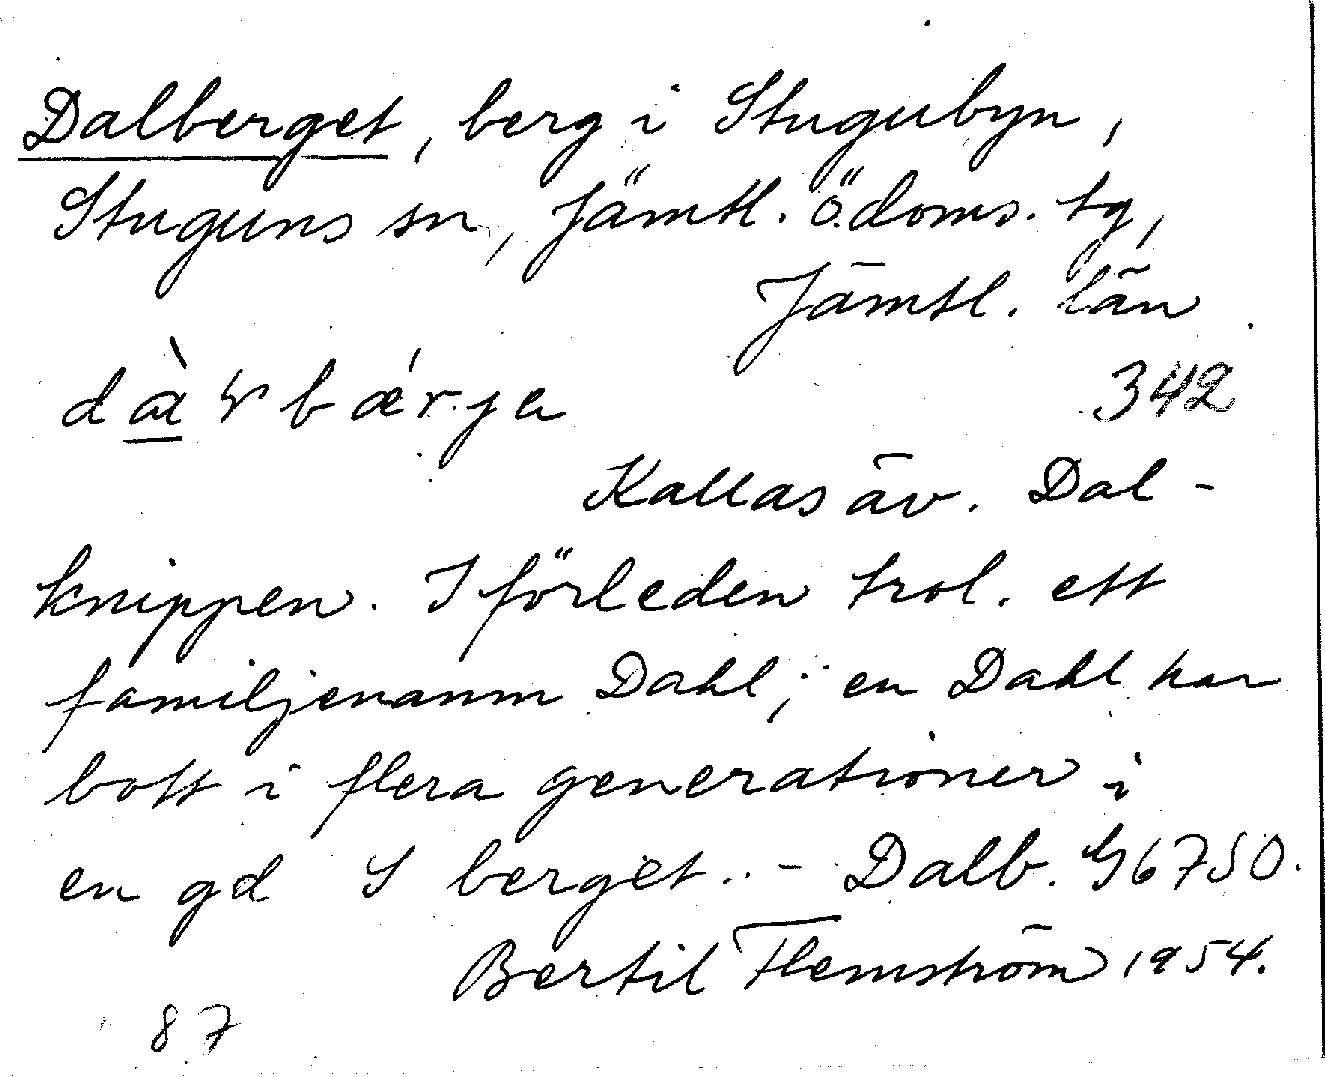 Dalberget, berg i Stugubyn,
Stuguns sn, Jämtl. ö. doms. tg,
Jämtl. län
342
Kallas äv. Dal-
knippen. I förleden trol. ett
familjenamn Dahl; en Dahl har
bott i flera generationer i
en gd S berget. - Dalb. G6750.
Bertil Flemström 1954.
87